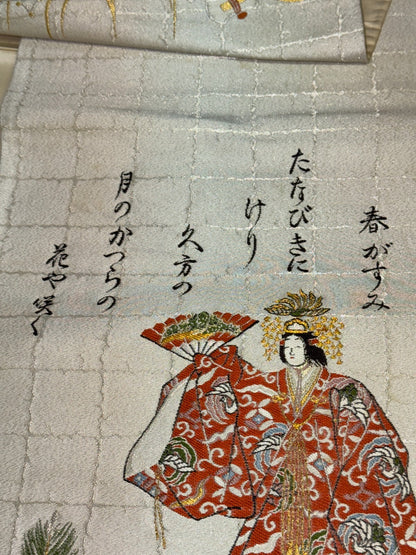 春がすみ
たなびきに
けり
久方の
月のかつらの
花や咲く